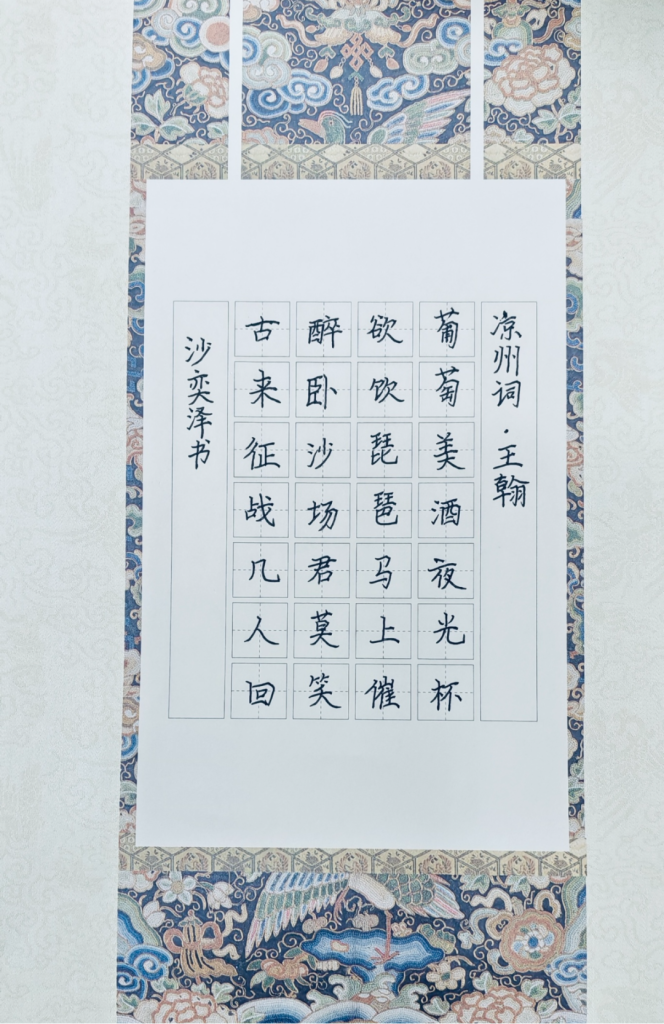 凉州词·王翰
葡萄美酒夜光杯
欲饮琵琶马上催
醉卧沙场君莫笑
古来征战几人回
沙奕泽书